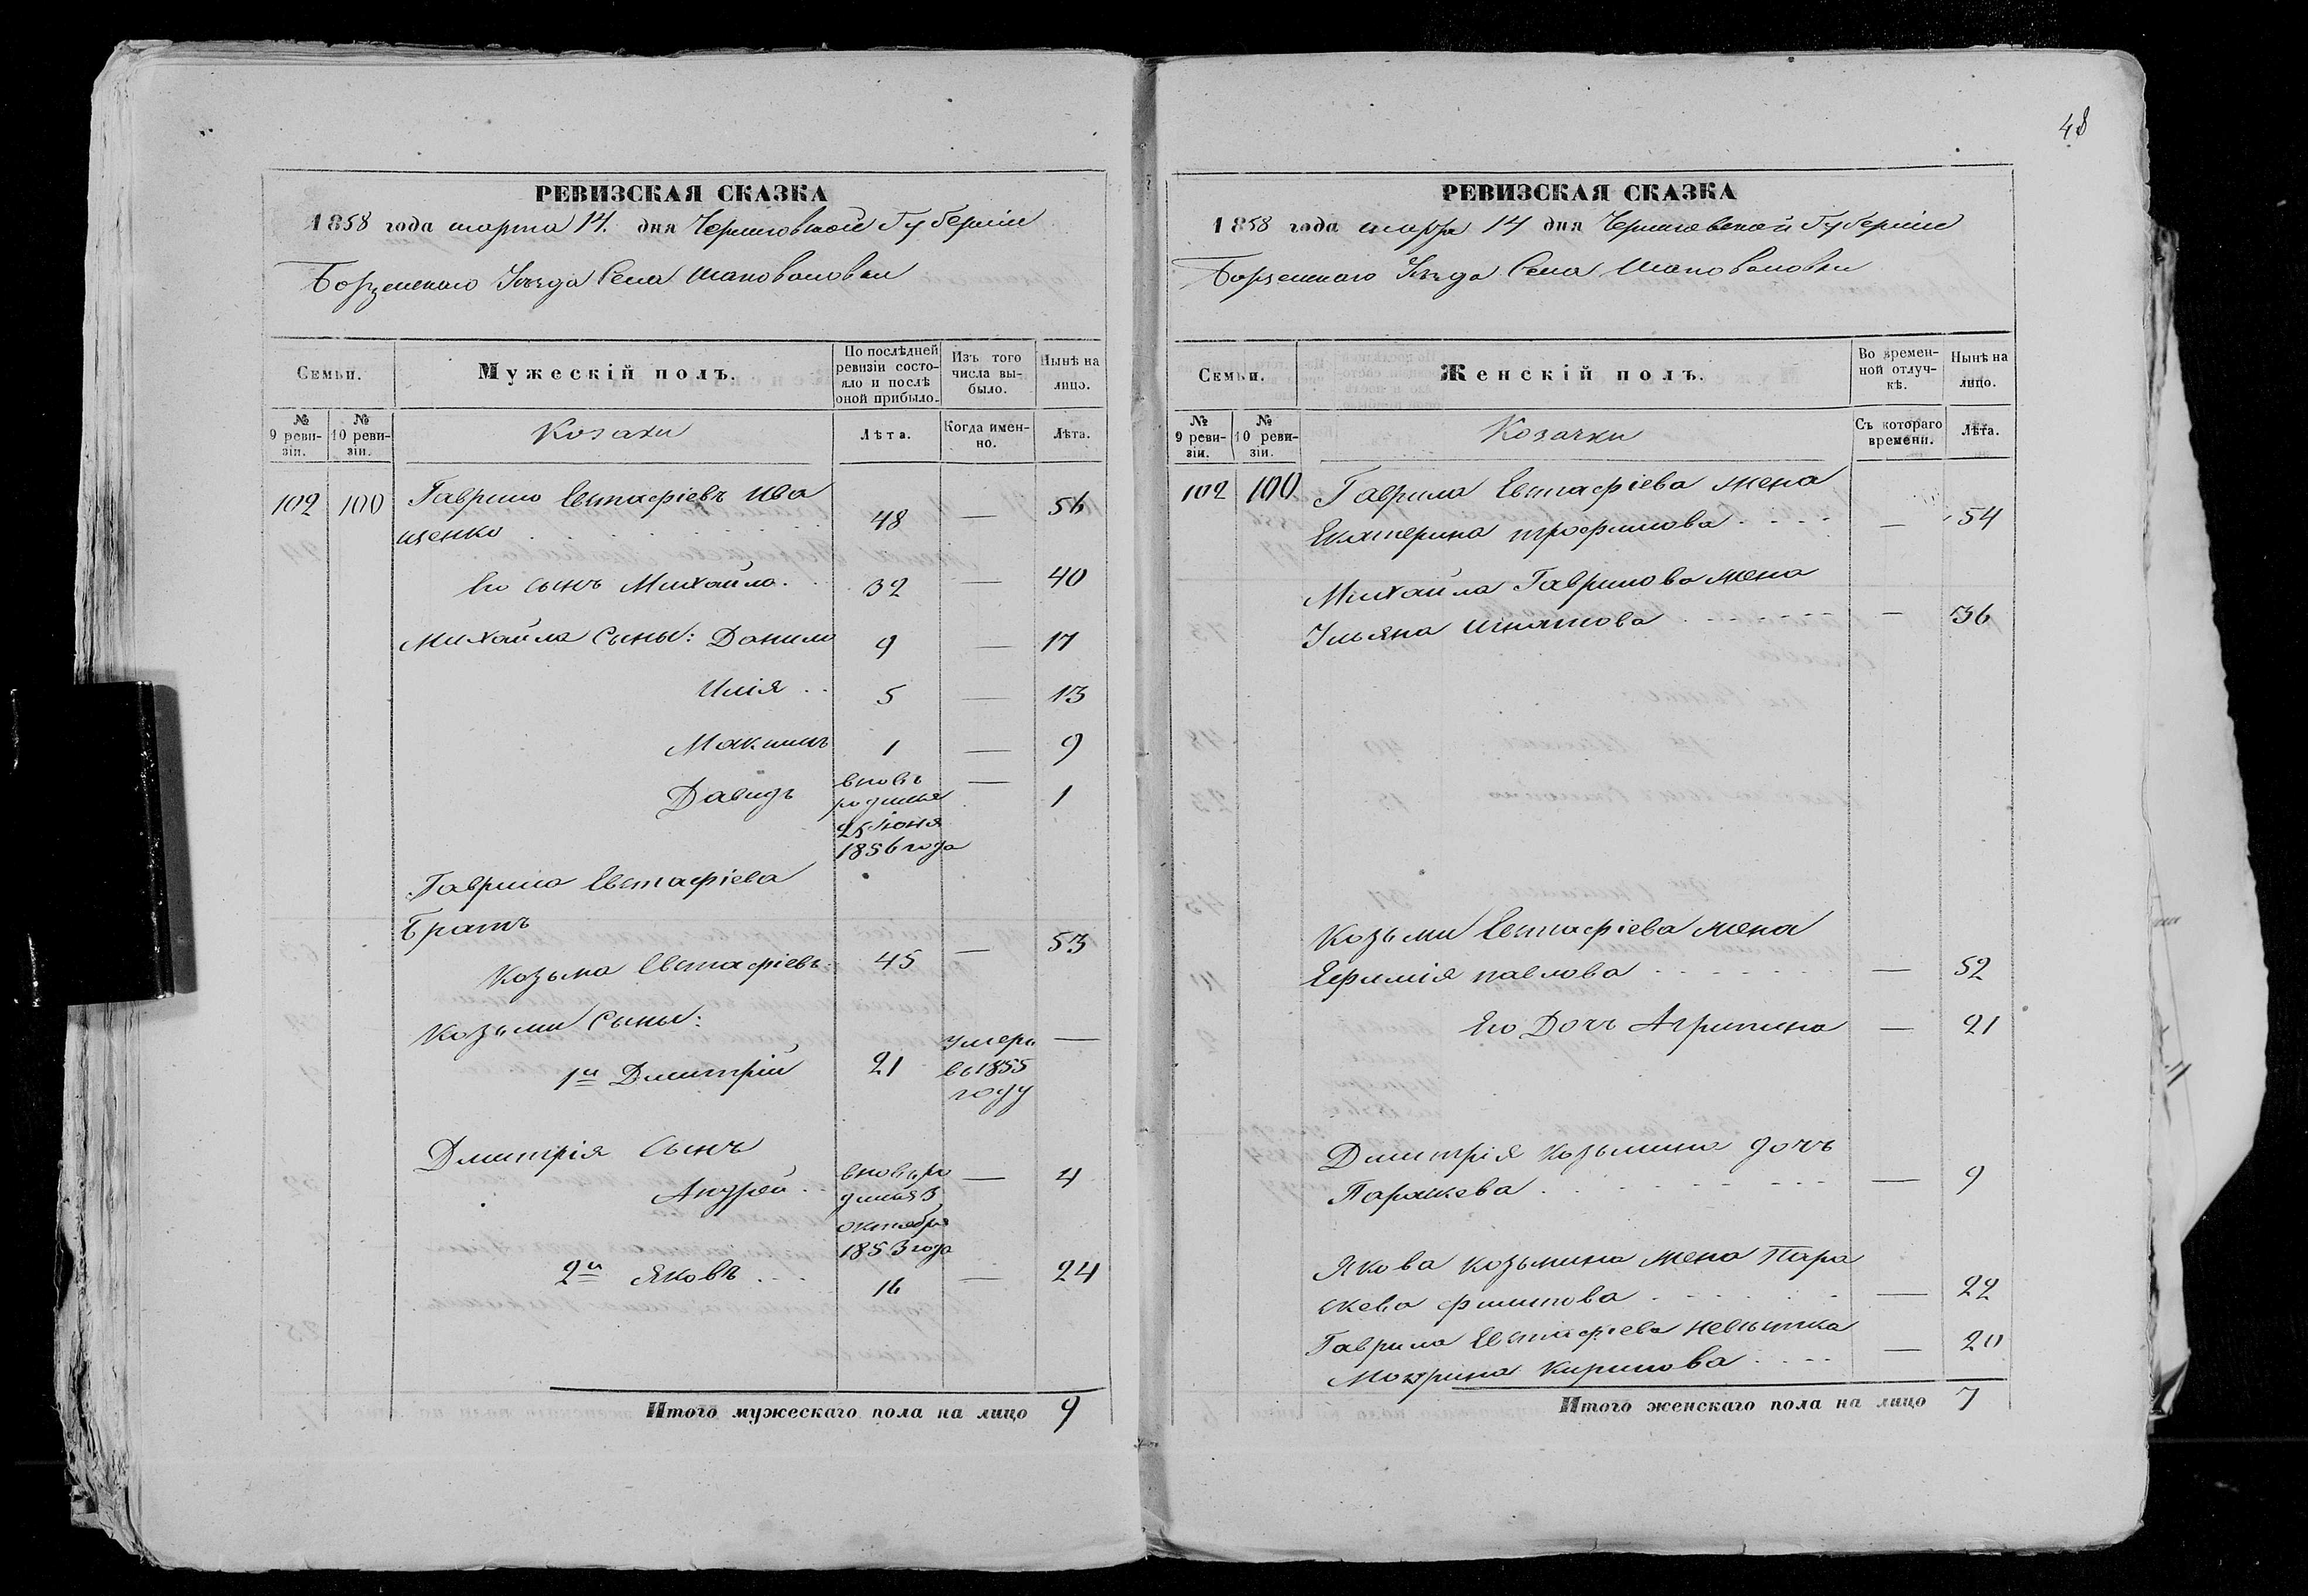 РЕВИЗСКАЯ СКАЗКА
1858 года марта 14. дня Черниговской Губерніи
Борзенскаго Уѣзда Села Шаповаловки
Семьи.
Мужескій полъ.
По послѣдней ревизіи состояло и послѣ оной прибыло.
Изъ того числа выбыло.
Нынѣ на лицо.
№ 9 ревизіи.
№ 10 ревизіи.
Козаки
Лѣта.
Когда именно.
Лѣта.
102 100 Гаврило Евстафіевъ Ива
щенко 48 — 56
Его сынъ Михайло. 32 — 40
Михайла Сыны: Данило 9 — 17
Илія 5 — 13
Максимъ 1 — 9
Давидъ вновь — 1
родился
25 Іюня
1856 года
Гаврила Евстафіева
Братъ
Козьма Евстафіевъ 45 — 53
Козьмы Сыны:
1й Дмитрій 21 умеръ —
въ 1855
году
Дмитрія Сынъ
Андрей вновь ро — 4
дился 3
октября
1853 года
2й Яковъ 16 — 24
Итого мужескаго пола на лицо 9
48
РЕВИЗСКАЯ СКАЗКА
1858 года марта 14 дня Черниговской Губерніи
Борзенскаго Уѣзда Села Шаповаловки
Семьи.
Женскій полъ.
Во временной отлучкѣ.
Нынѣ на лицо.
№ 9 ревизіи.
№ 10 ревизіи.
Козачки
Съ котораго времени.
Лѣта.
102 100 Гаврила Евстафіева жена
Екатерина трофимова — 54
Михайла Гаврилова жена
Ульяна Игнатова — 36
Козьмы Евстафіева жена
Ефимія павлова — 52
Его Дочь Агрипина — 21
Дмитрія Козьмина дочь
Параскева — 9
Якова козьмина жена Пара
скева филипова — 22
Гаврила Евстафіева невѣстка
Мотрина Кирилова — 20
Итого женскаго пола на лицо 7